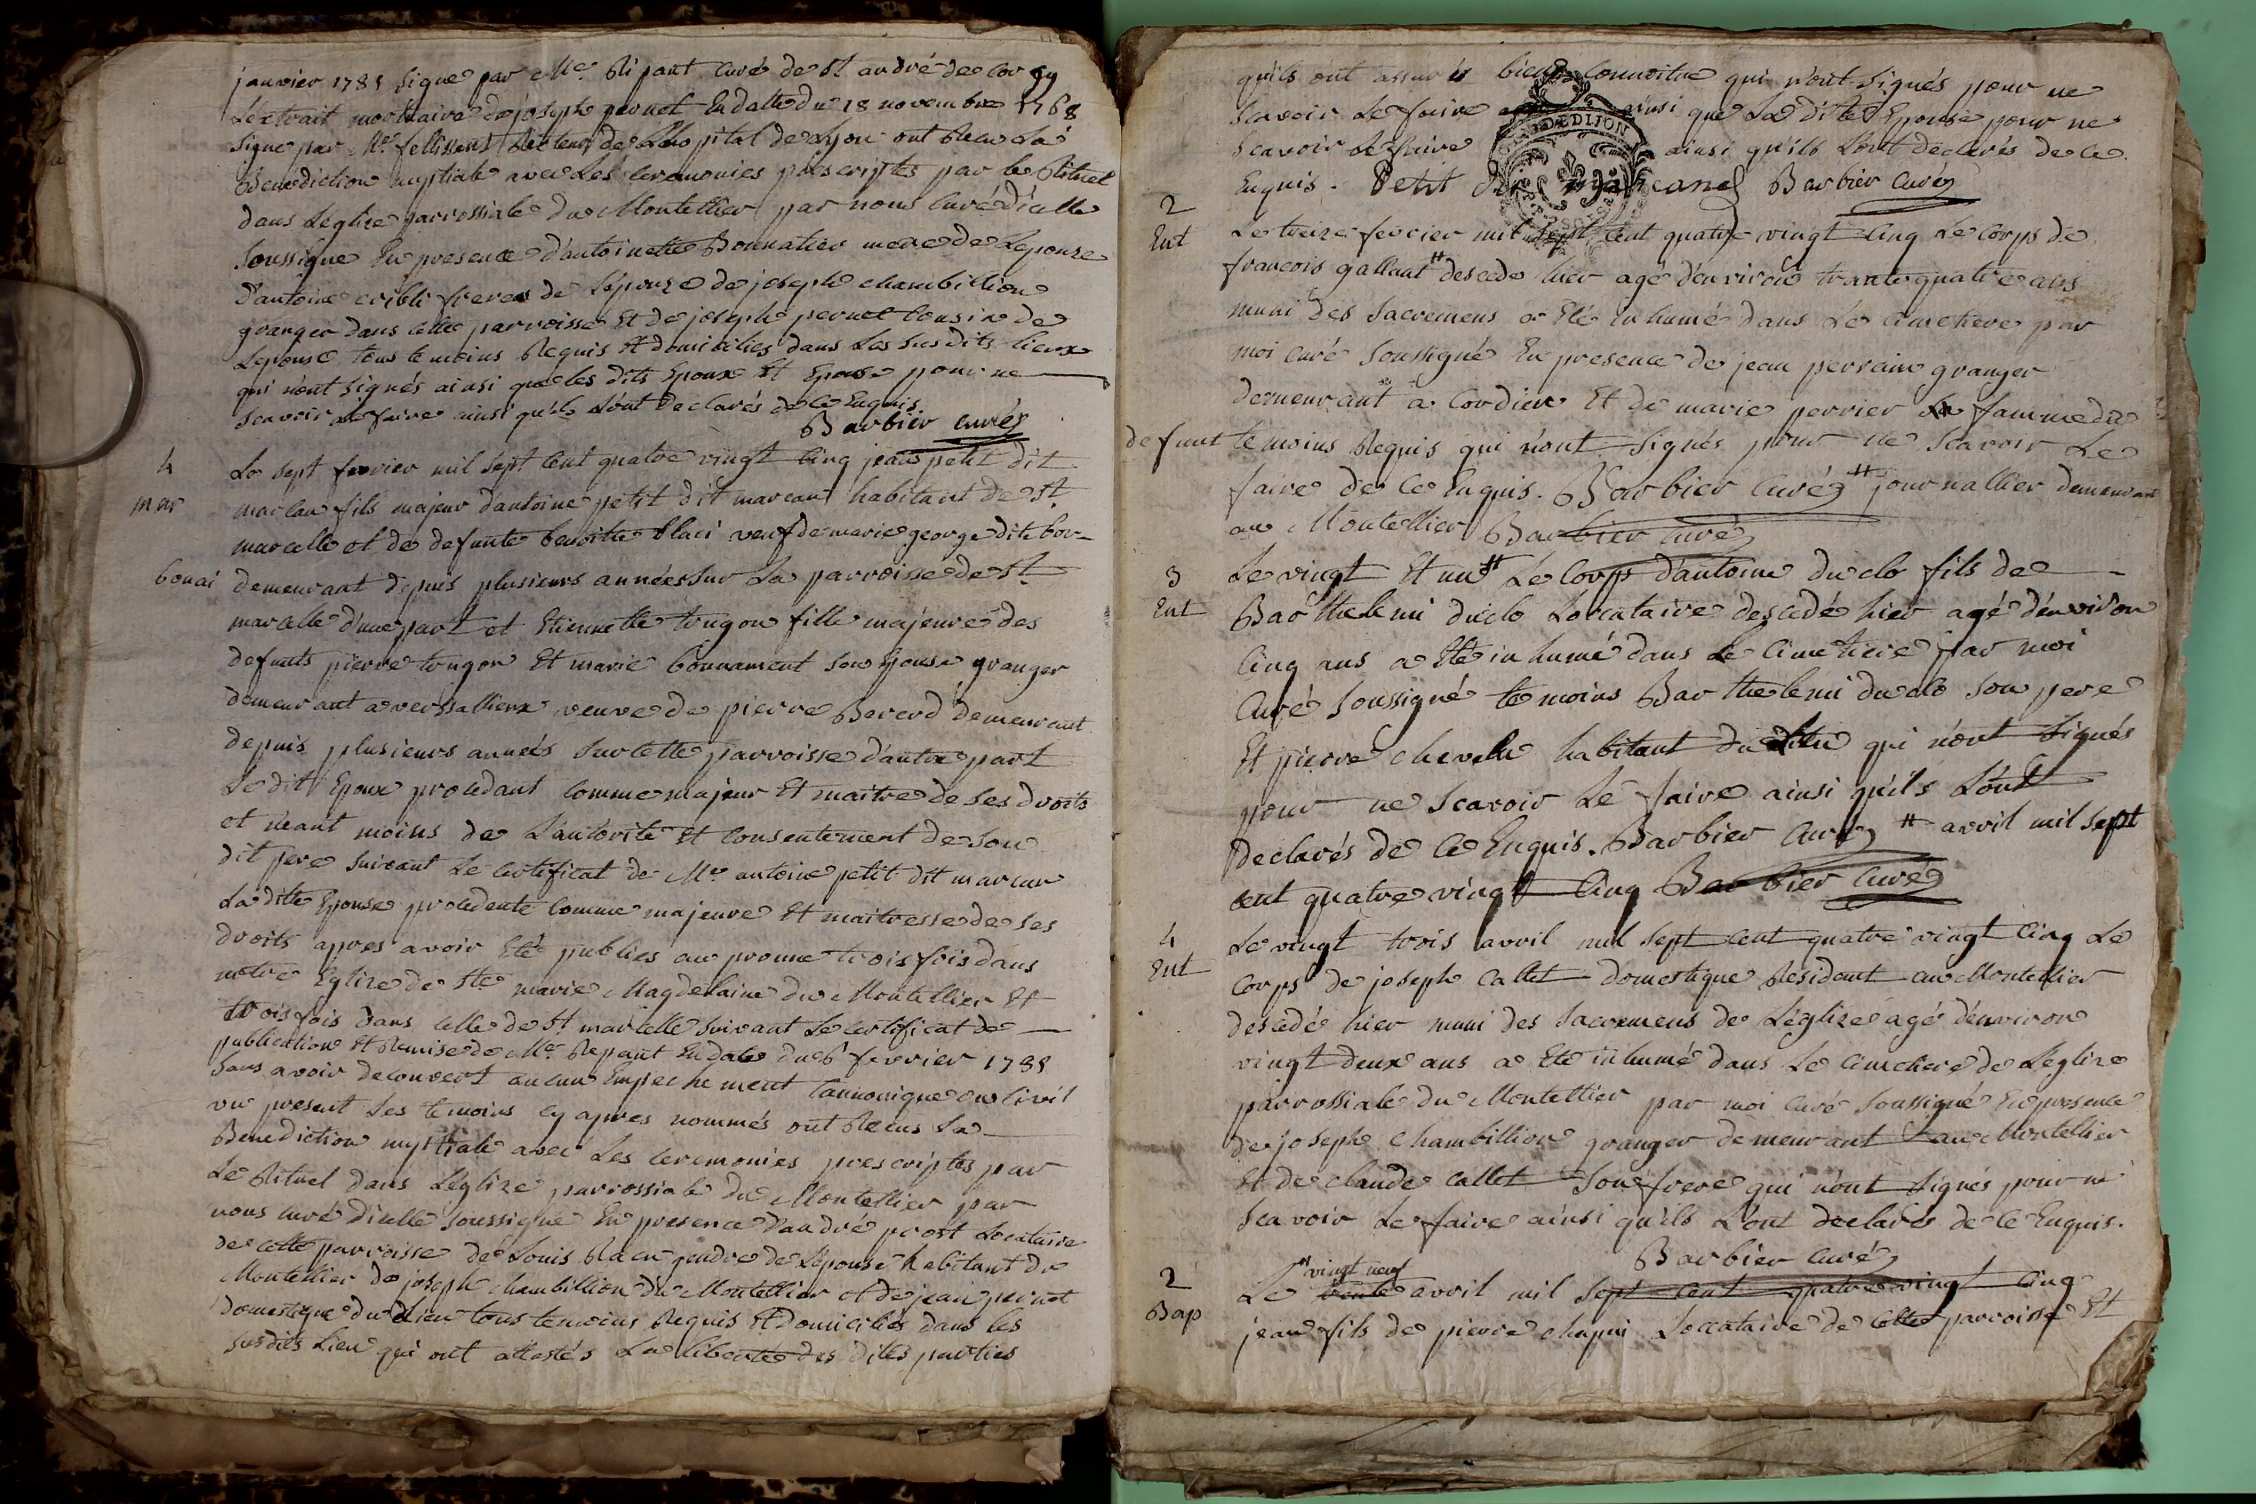 janvier 1785 signe par Me. Ripant curé de St andré de Corcy
L'extrait mortuaire de joseph pernet En datte du 18 novembre 1768
signe par Mr. fellissent Recteur de L'hopital de Lyon ont Recu La
Benediction nuptiale avec Les ceremonies prescriptes par le Rituel
dans L'eglize parrossiale du Montellier par nous Curé d'icelle
soussigne En presence d'antoinette Bonnatier mere de L'epouze
d'antoine cribli freres de L'epouze de joseph chambillion
granger dans cette parroisse Et de joseph pernet Cousin de
L'epouse tous temoins Requis Et domiciliés dans Les susdits lieux
qui n'ont signés ainsi que les dits Epoux Et Epouse pour ne
scavoir Le faire ainsi qu'ils L'ont Declarés de Ce Enquis
Barbier curé
4
mar
Le sept fevrier mil sept Cent quatre vingt Cinq jean petit dit
marcan fils majeur d'antoine petit dit marcan habitant de St.
marcelle et de defunte benoitte Blaci veuf de marie george dite bor-
bonai demeurant depuis plusieurs années sur La parroisse de St.
marcelle d'une part et Etiennette tougon fille majeure des
defunts pierre tougon Et marie bonnament son Epouse granger
demeurant a verssallieux veuve de pierre Bererd demeurant
depuis plusieurs années sur cette parroisse d'autre part
Le dit Epoux procedant comme majeur Et maitre de ses droits
et neant moins de L'autorité Et Consentement de son
dit pere suivant Le certificat de Me antoine petit dit marcan
La ditte Epouse procedente Comme majeure Et maitresse de ses
droits apres avoir Eté publies au prone trois fois dans
notre Eglize de Ste marie Magdelaine du Montellier Et
trois fois dans celle de St marcelle suivant Le certificat de
publication Et Remise de Me. Repant En date du 6 fevrier 1785
sans avoir decouvert aucun Empechement Cannonique ou Civil
vu present Les temoins cy apres nommés ont Recus La
Benediction nuptiale avec Les ceremonies prescriptes par
Le Rituel dans L'eglize parrossiale du Montellier par
nous curé d'icelle soussigne En presence d'andré prost Locataire
de cette parroisse de Louis Racu gendre de L'epouse habitant du
Montellier de joseph chambillion du Montellier et de jean pernet
domestique du Lieu tous temoins Requis Et Domiciliés dans les
susdits Lieu qui ont attestés La liberté des dites parties
qu'ils ont assurés bien Connoitre qui n'ont signés pour ne
scavoir Le faire ainsi que La dite Epouse pour ne
scavoir Le faire ainsi qu'ils L'ont declarés de Ce
Enquis. Petit dit marcand Barbier curé
DE DIJON
2
Ent
Le treize fevrier mil sept Cent quatre vingt Cinq Le Corps de
francois gallant # descede hier agé d'environ trante quatre ans
muni des sacremens a Eté inhumé dans Le Cimetiere par
moi curé soussigné En presence de jean perrain granger
demeurant a Cordieu Et de marie perrier La famme du
defunt temoins Requis qui n'ont signés pour ne scavoir Le
faire de Ce Enquis. Barbier Curé # journallier demeurant
au Montellier Barbier Curé
3
Ent
Le vingt Et un # Le Corps d'antoine duclo fils de
Barthelemi duclo Locataire descedé hier agé d'environ
Cinq ans a Eté inhumé dans Le Cimetiere par moi
Curé soussigné temoins Barthelemi duclo son pere
Et pierre chevelu habitant du Lieu qui n'ont signés
pour ne scavoir Le faire ainsi qu'ils L'ont
Declarés de Ce Enquis. Barbier Curé # avril mil sept
cent quatre vingt Cinq Barbier Curé
4
Ent
Le vingt trois avril mil sept cent quatre vingt Cinq Le
Corps de joseph Callet domestique Residant au Montellier
descedé hier muni des sacremens de L'eglize agé d'environ
vingt deux ans a Eté inhumé dans Le Cimetiere de L'eglize
parrossiale du Montellier par moi curé soussigné En presence
de joseph chambillion granger demeurant au Montellier
Et de claude Callet son frere qui n'ont signés pour ne
scavoir Le faire ainsi qu'ils L'ont declarés de Ce Enquis.
Barbier curé
2
Bap
Le vingt neuf avril mil sept cent quatre vingt Cinq
jean fils de pierre chapui Loccataire de cette parroisse Et